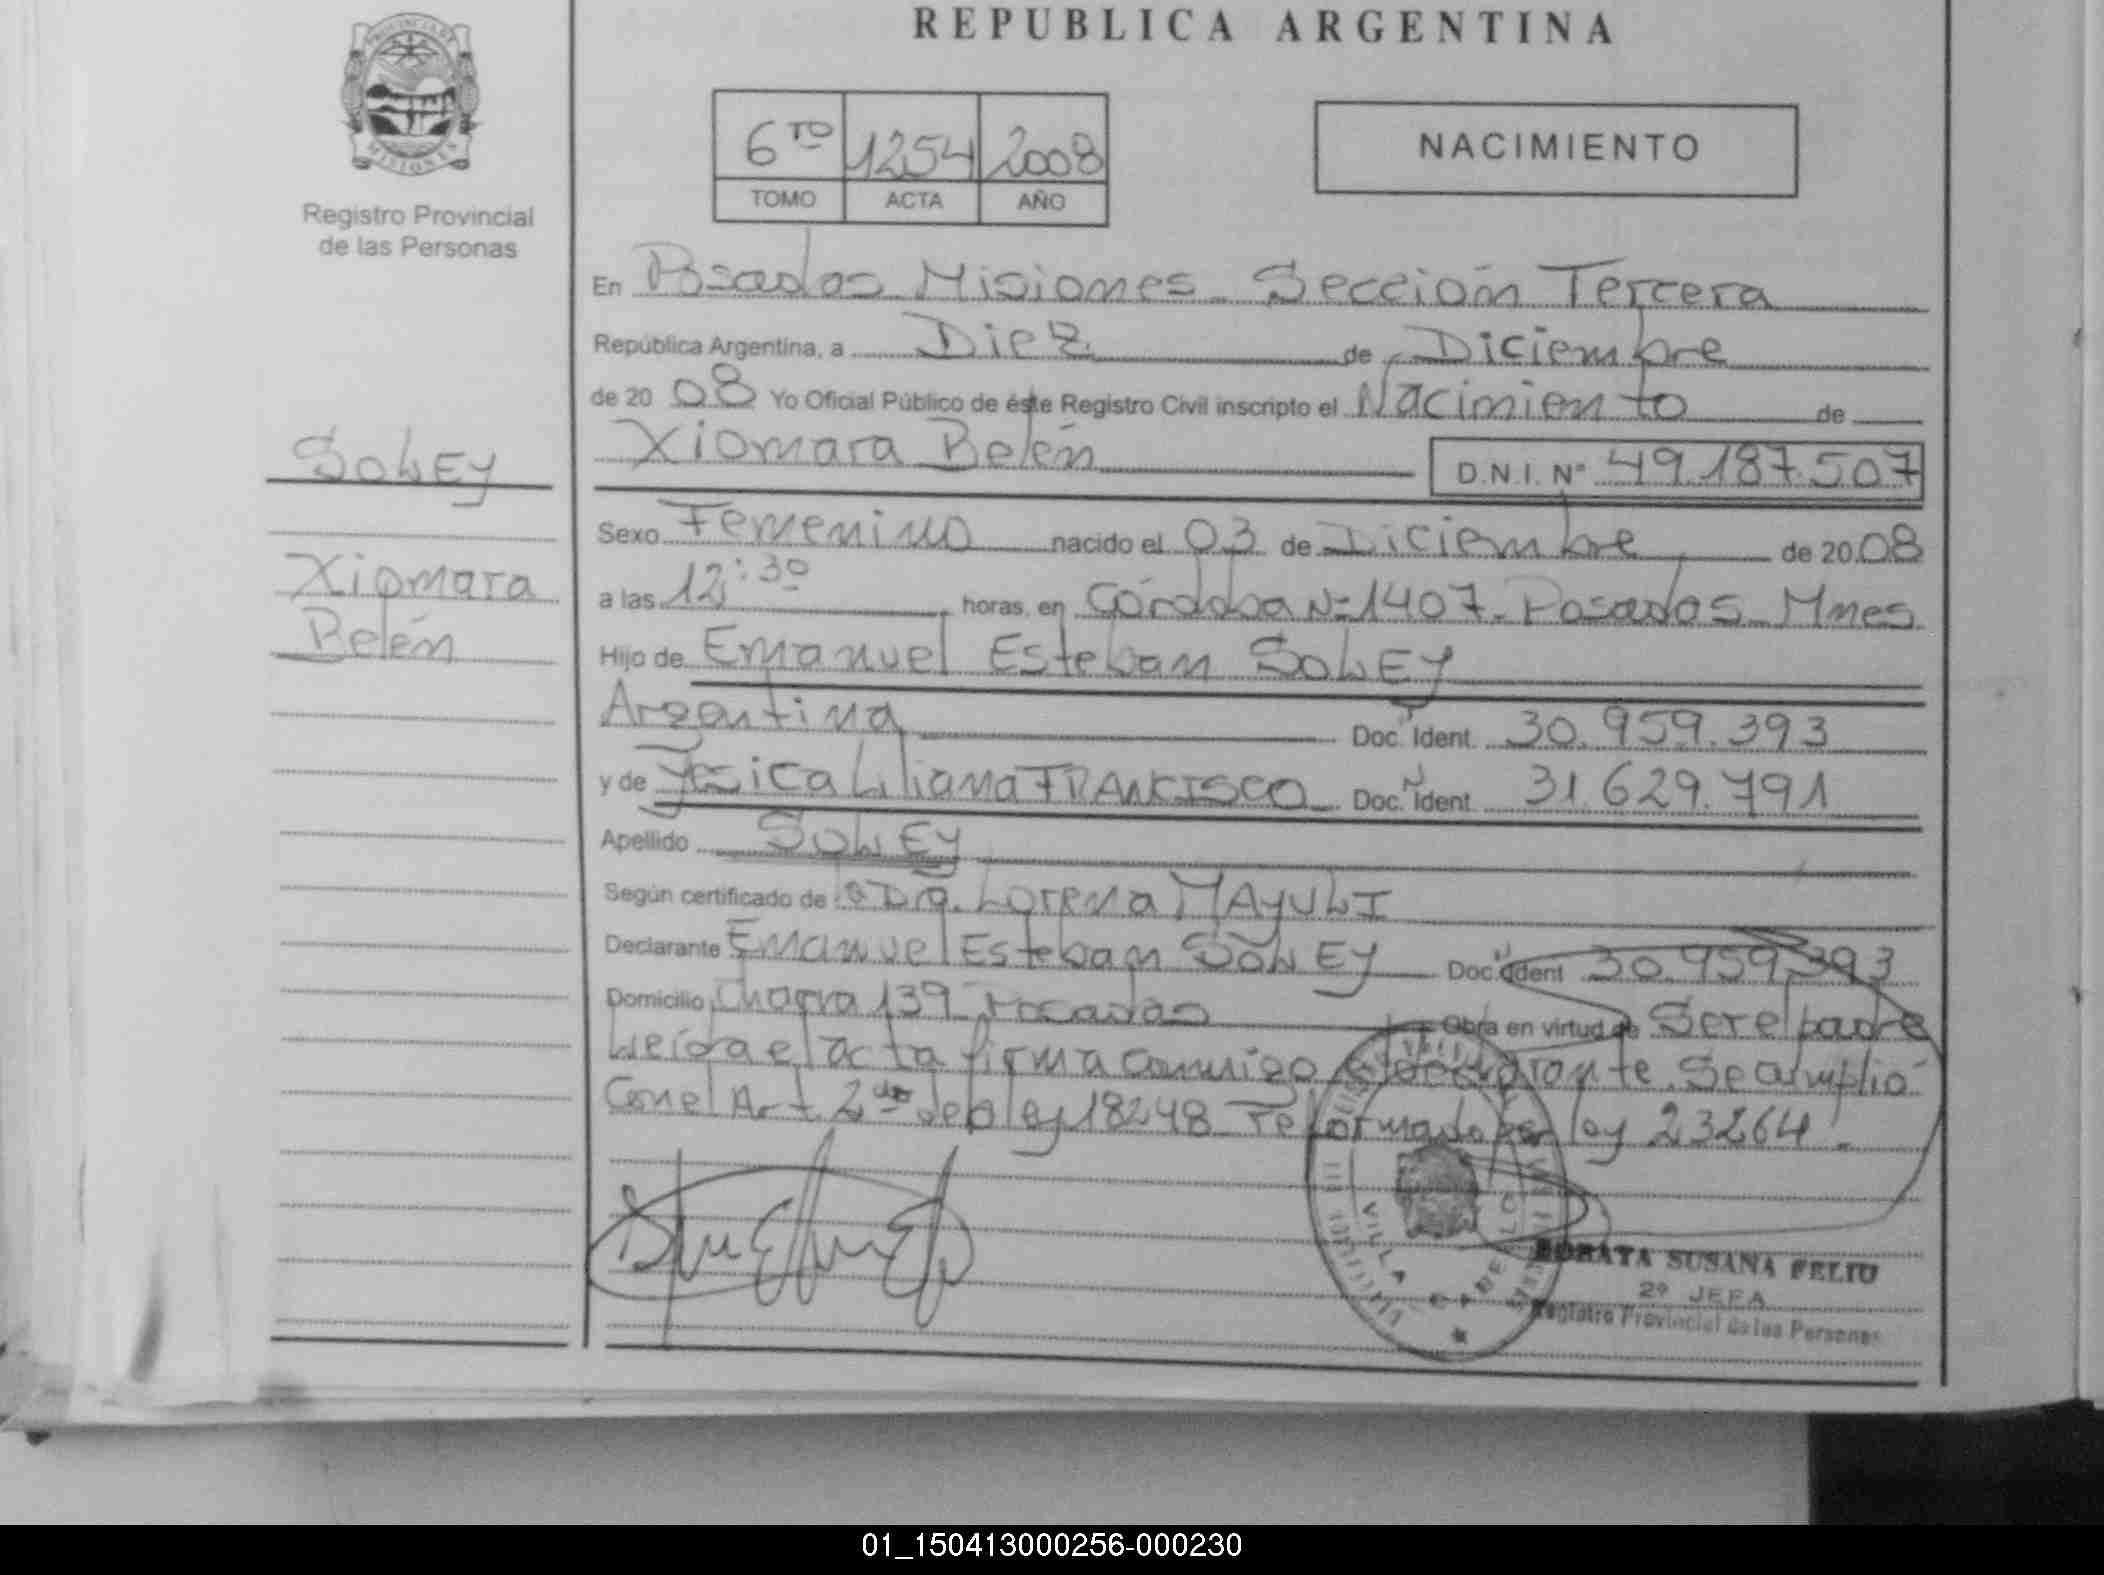 REPUBLICA ARGENTINA
PROVINCIA DE
MISIONES
Registro Provincial
de las Personas
6TO 1254 2008
TOMO ACTA AÑO
NACIMIENTO
En Posadas Misiones Sección Tercera
República Argentina, a Diez de Diciembre
de 2008 Yo Oficial Público de éste Registro Civil inscripto el Nacimiento de
Xiomara Belén D.N.I. Nº 49.187.507
SOLEY
Xiomara
Belén
Sexo Femenino nacido el 03 de Diciembre de 2008
a las 12:30 horas, en Córdoba Nº 1407 - Posadas Mnes
Hijo de Emanuel Esteban SOLEY
Argentina Doc. Ident. 30.959.393
y de Yesica Liliana FRANCISCO Doc. Ident. 31.629.791
Apellido SOLEY
Según certificado de Dra. Lorena MAYULI
Declarante Emanuel Esteban SOLEY Doc. Ident 30.959.393
Domicilio Chacra 139 Posadas Obra en virtud de Ser el padre
Leída el acta firma conmigo el declarante. Se cumplió
Con el Art. 2do de la ley 18248 reformado por ley 23264.
VILLA CABELLO
BORATA SUSANA FELIU
2º JEFA
Registro Provincial de las Personas
01_150413000256-000230